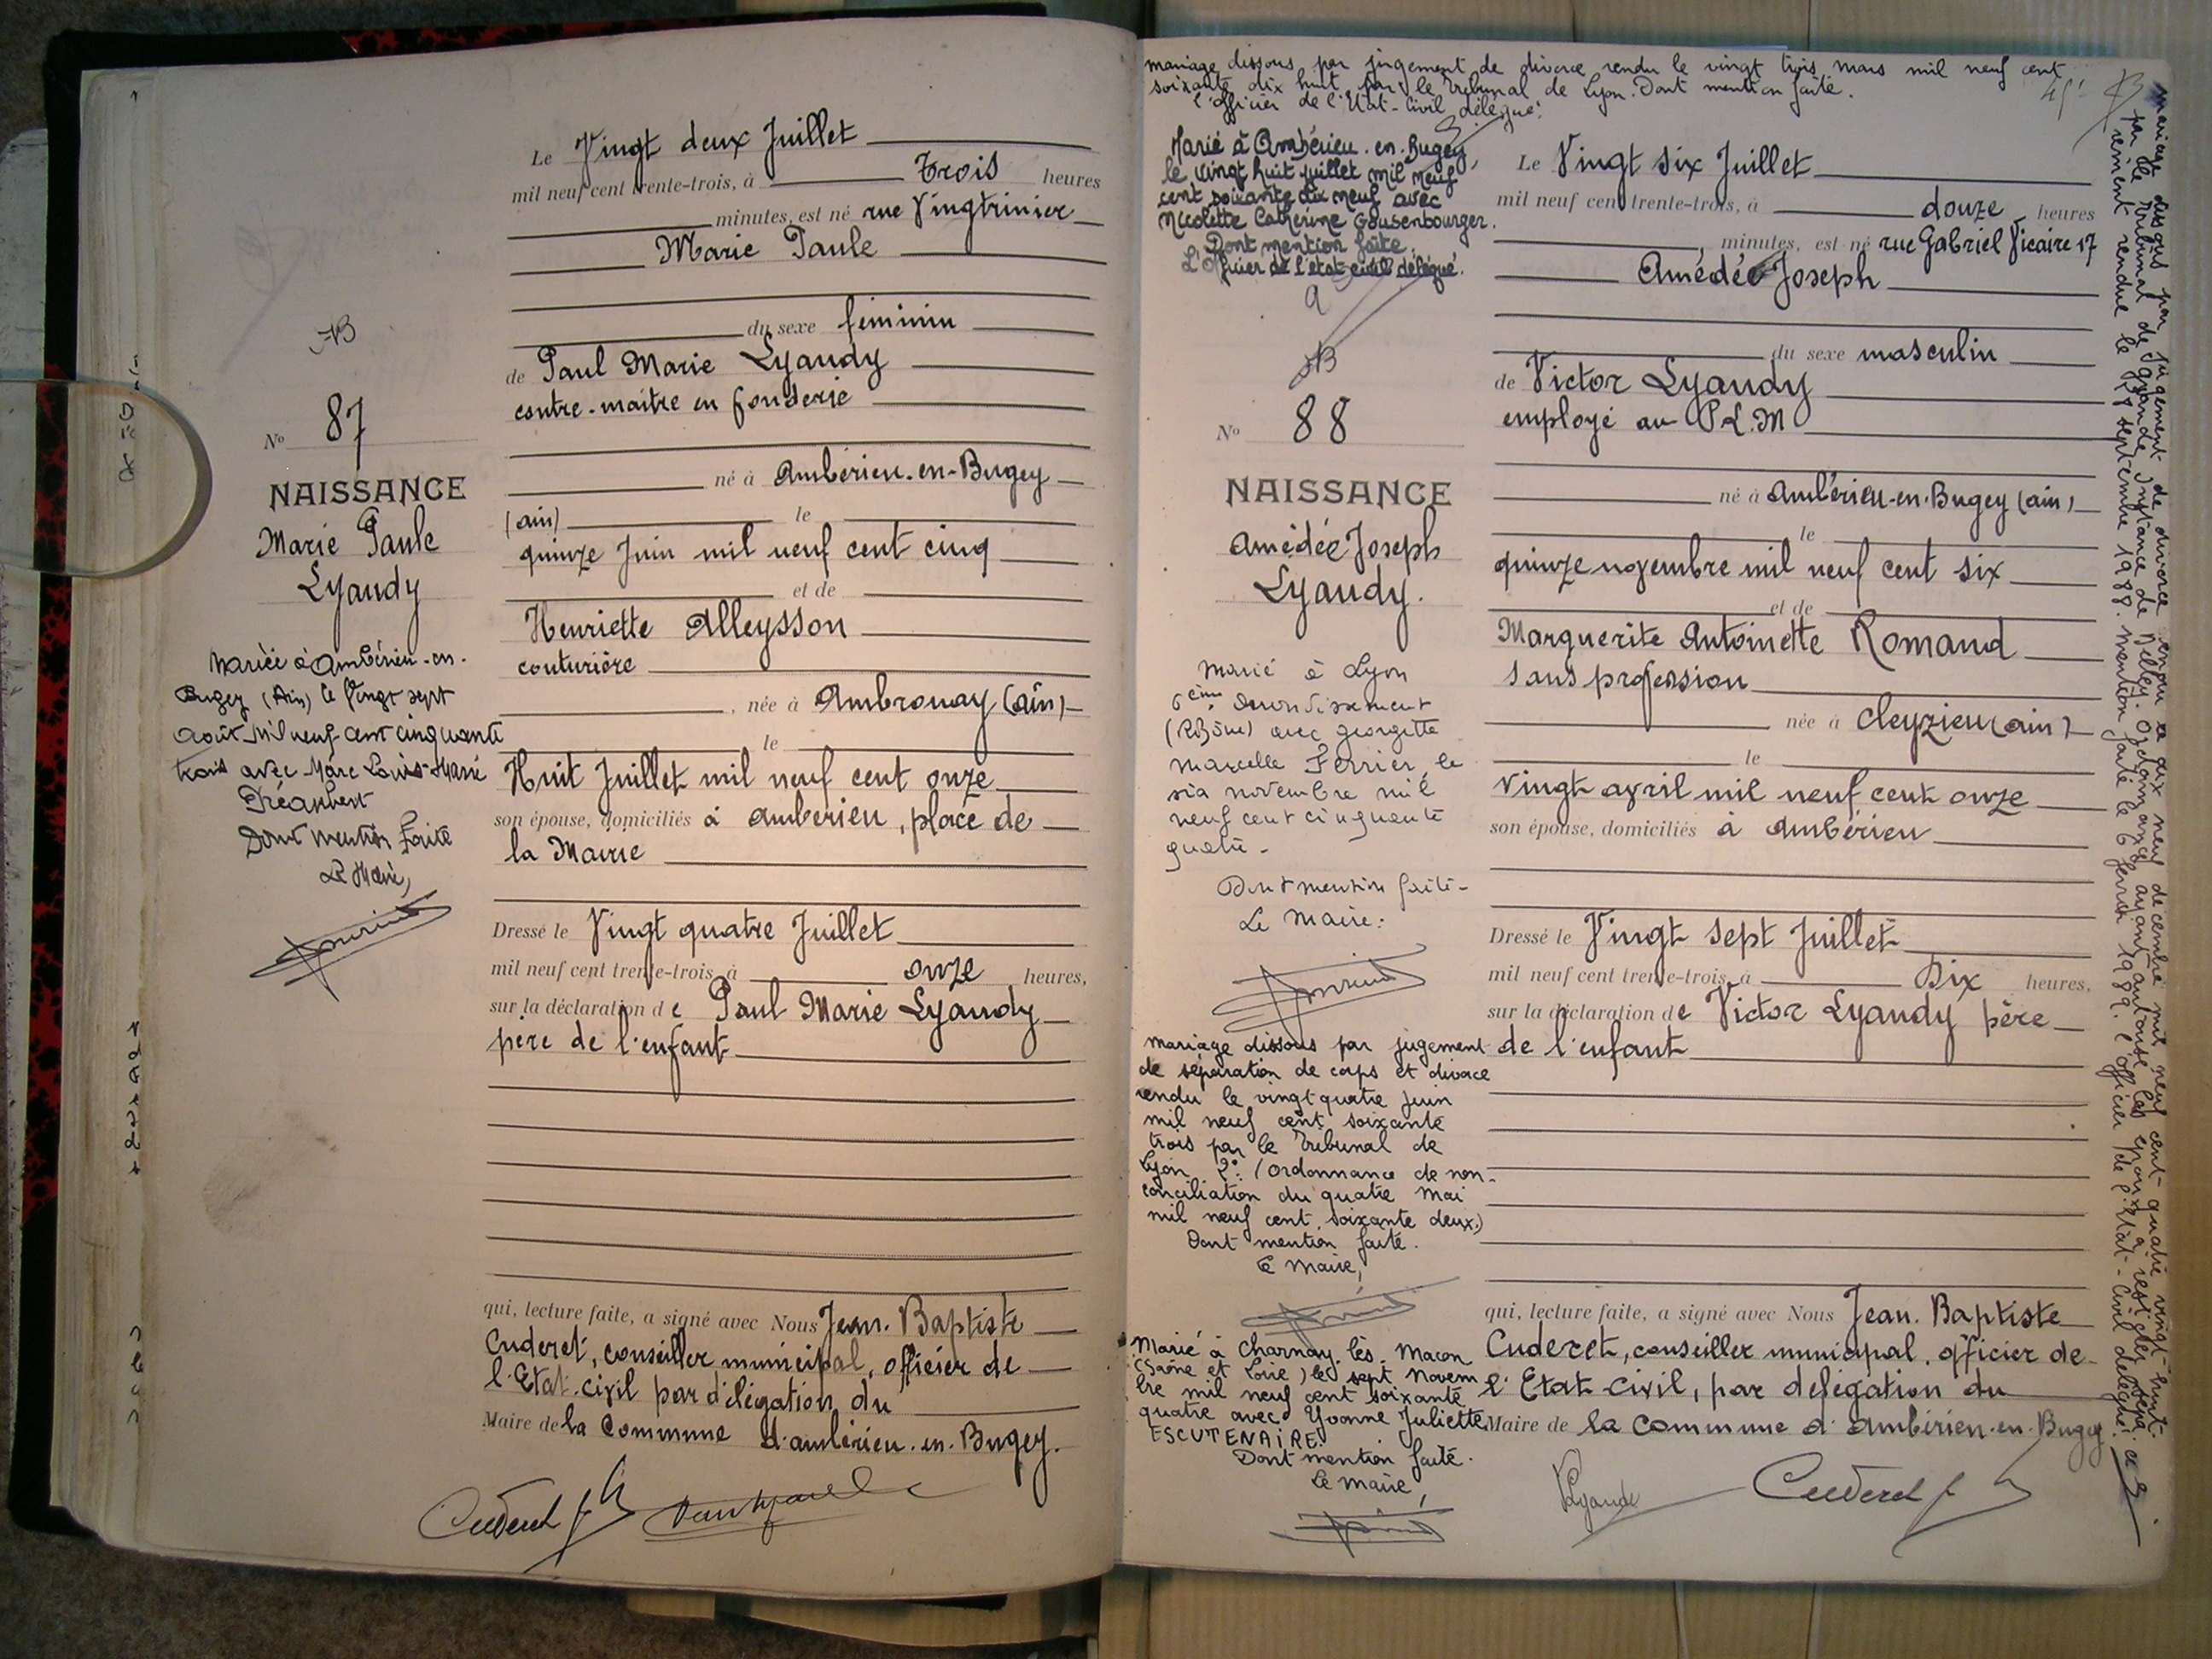 Le Vingt deux Juillet
mil neuf cent trente-trois, à Trois heures
minutes, est né rue Vingtrinier
Marie Paule
du sexe féminin
de Paul Marie Lyaudy
contre-maitre en fonderie
né à Ambérieu-en-Bugey
(ain) le
quinze Juin mil neuf cent cinq
et de
Henriette Alleysson
couturière
, née à Ambronay (ain)
le
Huit Juillet mil neuf cent onze
son épouse, domiciliés à Ambérieu, place de
la Mairie
Dressé le Vingt quatre Juillet
mil neuf cent trente-trois, à onze heures,
sur la déclaration de Paul Marie Lyaudy
père de l'enfant
qui, lecture faite, a signé avec Nous Jean-Baptiste
Cuderet, conseiller municipal, officier de
l'Etat-civil par délégation du
Maire de la Commune d'ambérieu-en-Bugey.
Cuderet J
B
No 87
NAISSANCE
Marie Paule
Lyaudy
Mariée à Ambérieu-en-
Bugey (Ain) le Vingt sept
Août Mil neuf cent cinquante
trois avec Marc Louis Marie
Dont mention faite
Le Maire,
mariage dissous par jugement de divorce rendu le vingt trois mars mil neuf cent
soixante dix huit par le Tribunal de Lyon. Dont mention faite.
l'officier de l'Etat-Civil délégué.
45
Marié à Ambérieu-en-Bugey,
le vingt huit juillet mil neuf
cent soixante dix neuf avec
Nicolette Catherine Gousenbourger.
Dont mention faite.
L'Officier de l'état civil délégué.
B
No 88
NAISSANCE
Amédée Joseph
Lyaudy.
Marié à Lyon
6ème Arrondissement
(Rhône) avec Georgette
Marcelle Ferrier le
six novembre mil
neuf cent cinquante
quatre -
Dont mention faite -
Le Maire :
mariage dissous par jugement
de séparation de corps et divorce
rendu le vingt quatre juin
mil neuf cent soixante
trois par le Tribunal de
Lyon 2°: (Ordonnance de non-
conciliation du quatre mai
mil neuf cent soixante deux.)
Dont mention faite.
Le Maire,
Marié à Charnay les Macon
(Saône et Loire) le sept Novem
bre mil neuf cent soixante
quatre avec Yvonne Juliette
ESCUTENAIRE.
Dont mention faite.
Le Maire,
Le Vingt six Juillet
mil neuf cent trente-trois, à douze heures
, minutes, est né rue Gabriel Vicaire 17
Amédée Joseph
du sexe masculin
de Victor Lyaudy
employé au P.L.M
né à Ambérieu-en-Bugey (ain)
le
quinze novembre mil neuf cent six
et de
Marguerite Antoinette Romand
sans profession
née à Cleyzieu (ain)
le
vingt avril mil neuf cent onze
son épouse, domiciliés à Ambérieu
Dressé le Vingt sept Juillet
mil neuf cent trente-trois, à Dix heures,
sur la déclaration de Victor Lyaudy père
de l'enfant
qui, lecture faite, a signé avec Nous Jean-Baptiste
Cuderet, conseiller municipal, officier de
l'Etat Civil, par délégation du
Maire de la Commune d'Ambérieu-en-Bugey
V Lyaudy Cuderet J
mariage dissous par jugement de divorce rendu le dix neuf decembre mil neuf cent quatre vingt-huit
par le Tribunal de Grande Instance de Belley. Ordonnance ayant autorisé les époux à résider
rendue le 28 septembre 1988. Mention faite le 6 février 1989. l'officier de l'Etat-Civil délégué.